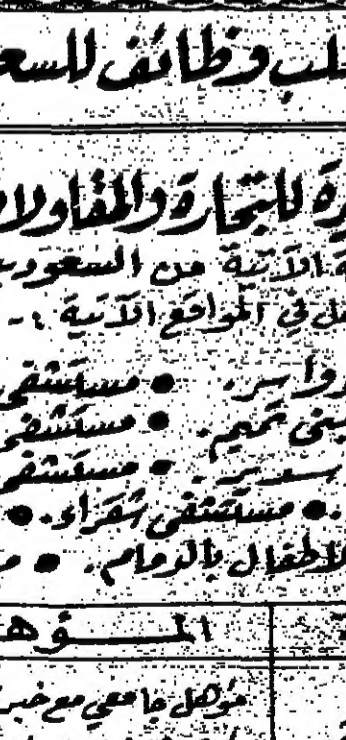 لب وظائف للسعو
ة للتجارة والمقاولا
ة الآتية من السعودي
ل في المواقع الآتية :-
دواسر. • مستشفى
بني تميم. • مستشفى
سدير. • مستشفى
. • مستشفى شقراء. •
الاطفال بالدمام. • م
المؤه
مؤهل جامعي مع خبر